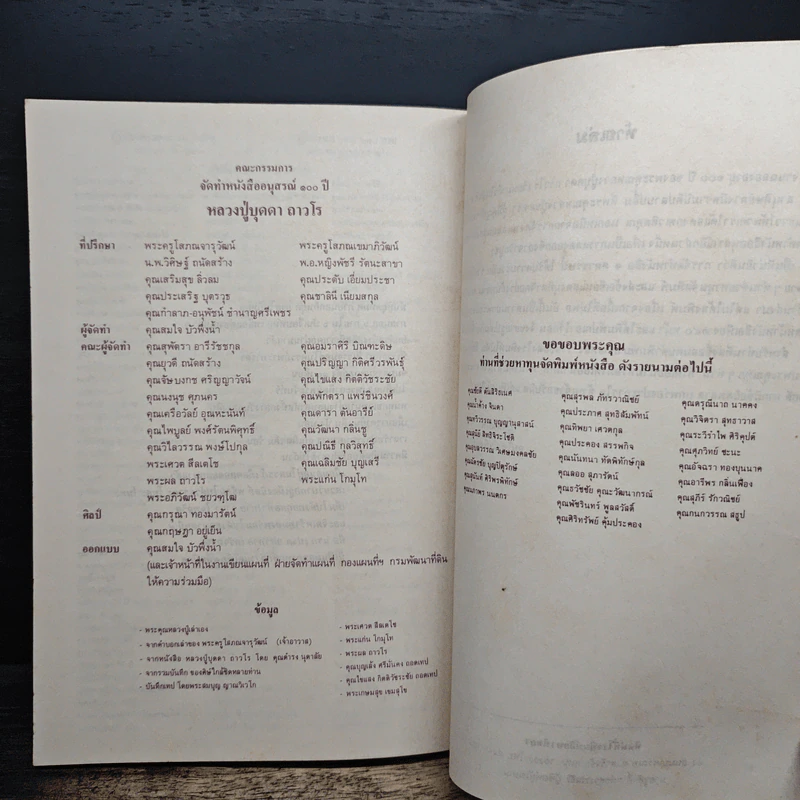 คณะกรรมการ
จัดทำหนังสืออนุสรณ์ ๑๐๐ ปี
หลวงปู่บุดดา ถาวโร
ที่ปรึกษา พระครูโสภณจารุวัฒน์ พระครูโสภณเขมาภิวัฒน์
น.พ.วิศิษฐ์ ถนัดสร้าง พ.อ.หญิงพัชรี รัตนะสาขา
คุณเสริมสุข ลิ่วลม คุณประดับ เอี่ยมประชา
คุณประเสริฐ บุตรวุธ คุณชาลินี เนียมสกุล
คุณกำลาภ-อนุพัชน์ ชำนาญศรีเพชร
ผู้จัดทำ คุณสมใจ บัวพึ่งน้ำ
คณะผู้จัดทำ คุณสุพัตรา อารีรัชชกุล คุณอมราศิริ บิณฑะดิษ
คุณยุวดี ถนัดสร้าง คุณปริญญา กิติศรีวรพันธุ์
คุณจัษบงกช ศริญญาวัจน์ คุณไขแสง กิตติวัชระชัย
คุณนงนุช ศุภนคร คุณพักตรา แพร่ชินวงศ์
คุณเครือวัลย์ อุณหะนันท์ คุณดารา ตันอารีย์
คุณไพบูลย์ พงศ์รัตนพิศุทธิ์ คุณวัฒนา กลิ่นชู
คุณวิไลวรรณ พงษ์โปกุล คุณปณิธี กุลวิสุทธิ์
พระเศวต สีลเตโช คุณเฉลิมชัย บุญเสรี
พระผล ถาวโร พระแก่น โกมุโท
พระอภิวัฒน์ ชยวฑฺโฒ
ศิลป์ คุณกรุณา ทองมารัตน์
คุณกฤษฎา อยู่เย็น
ออกแบบ คุณสมใจ บัวพึ่งน้ำ
(และเจ้าหน้าที่ในงานเขียนแผนที่ ฝ่ายจัดทำแผนที่ กองแผนที่ฯ กรมพัฒนาที่ดิน
ให้ความร่วมมือ)
ข้อมูล
- พระคุณหลวงปู่เล่าเอง - พระเศวต สีลเตโช
- จากคำบอกเล่าของ พระครูโสภณจารุวัฒน์ (เจ้าอาวาส) - พระแก่น โกมุโท
- จากหนังสือ หลวงปู่บุดดา ถาวโร โดย คุณดำรง นุตาลัย - พระผล ถาวโร
- จากรวมบันทึก ของศิษย์ใกล้ชิดหลายท่าน - คุณบุญเล้ง ศรีมันคง ถอดเทป
- บันทึกเทป โดยพระสมบุญ ญาณวิเวโก - คุณไขแสง กิตติวัชระชัย ถอดเทป
- พระเกษมสุข เขมสุโข
ขอขอบพระคุณ
ท่านที่ช่วยหาทุนจัดพิมพ์หนังสือ ดังรายนามต่อไปนี้
คุณชัยดี ตันสิริยเนศ คุณสุรพล ภัทรวาณิชย์ คุณดรุณีนาถ นาคคง
คุณน้ำค้าง จินดา คุณประภาศ สุทธิสัมพัทน์ คุณวิจิตรา สุทธาวาส
คุณรวีวรรณ บุญญานุสาสน์ คุณทิพยา เศวตกุล คุณระวีรำไพ ศิริคุปต์
คุณสุนีย์ สิทธิจิระโชติ คุณประคอง สรรพกิจ คุณศุภวิทย์ ชะนะ
คุณสุเสวรรณ วิเศษมงคลชัย คุณนันทนา ทัตพิทักษ์กุล คุณอัจฉรา ทองบุนนาค
คุณฉัตรชัย บุญปิตุรักษ์ คุณลออ สุภารัตน์ คุณอารีพร กลิ่นเฟื่อง
คุณสุนันท์ ศิริพรพิทักษ์ คุณธวัชชัย คุณะวัฒนากรณ์ คุณสุภีร์ รักวณิชย์
คุณภาพร นนตกร คุณพัชรินทร์ พูลสวัสดิ์ คุณกนกวรรณ สรูป
คุณศิริทรัพย์ คุ้มประคอง